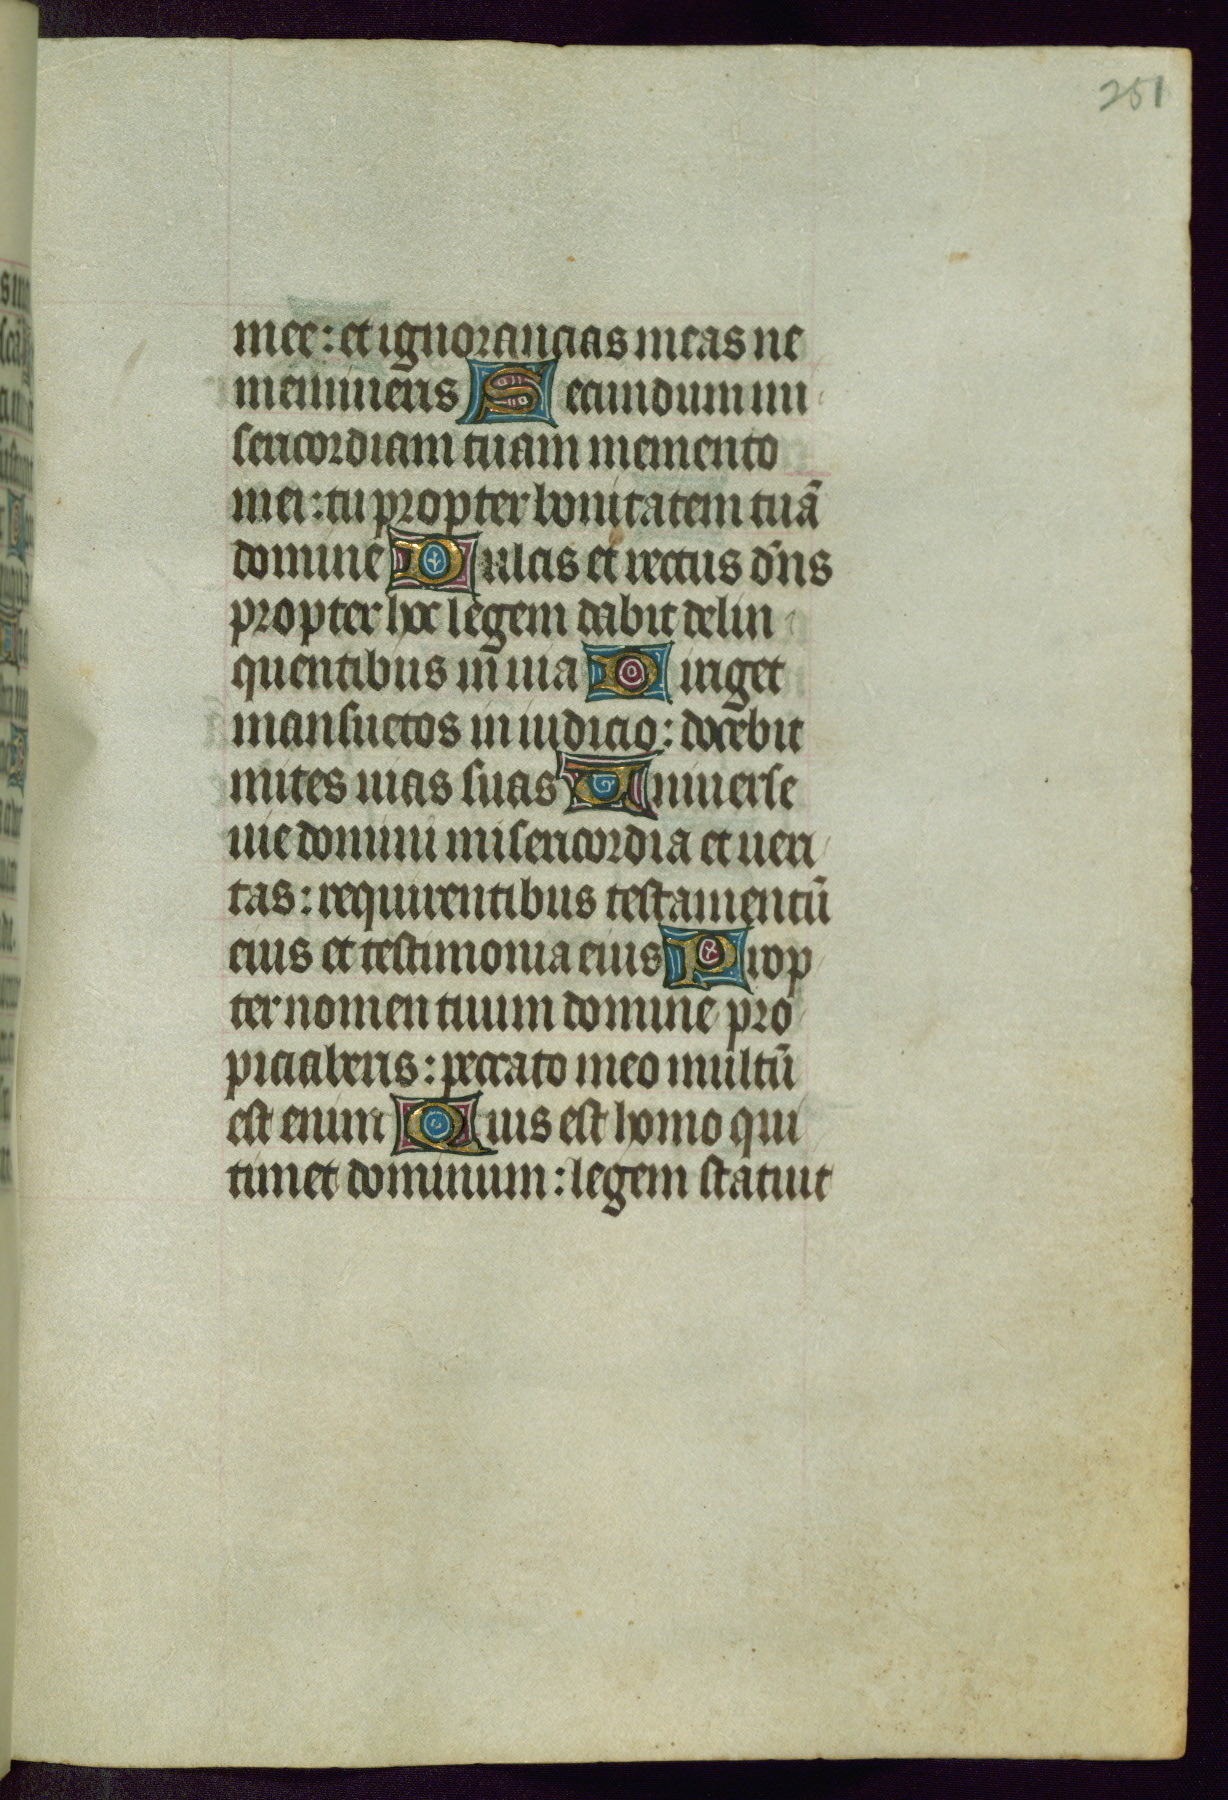 251
mee : et ignorancias meas ne
memineris Secundum mi
sericordiam tuam memento
mei : tu propter bonitatem tuā
domine Dulcis et rectus dn̄s
propter hoc legem dabit delin
quentibus in uia Diriget
mansuetos in iudicio : docebit
mites uias suas Uniuerse
uie domini misericordia et ueri
tas : requirentibus testamentū
eius et testimonia eius Prop
ter nomen tuum domine pro
piciaberis : peccato meo multū
est enim Quis est homo qui
timet dominum : legem statuit